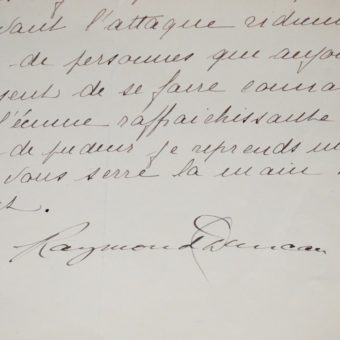 vant l'attaque ridicu
de personnes que aujou
sent de se faire conna
l'écume raffraichissante
de pudeur je reprends m
vous serre la main
Raymond Duncan